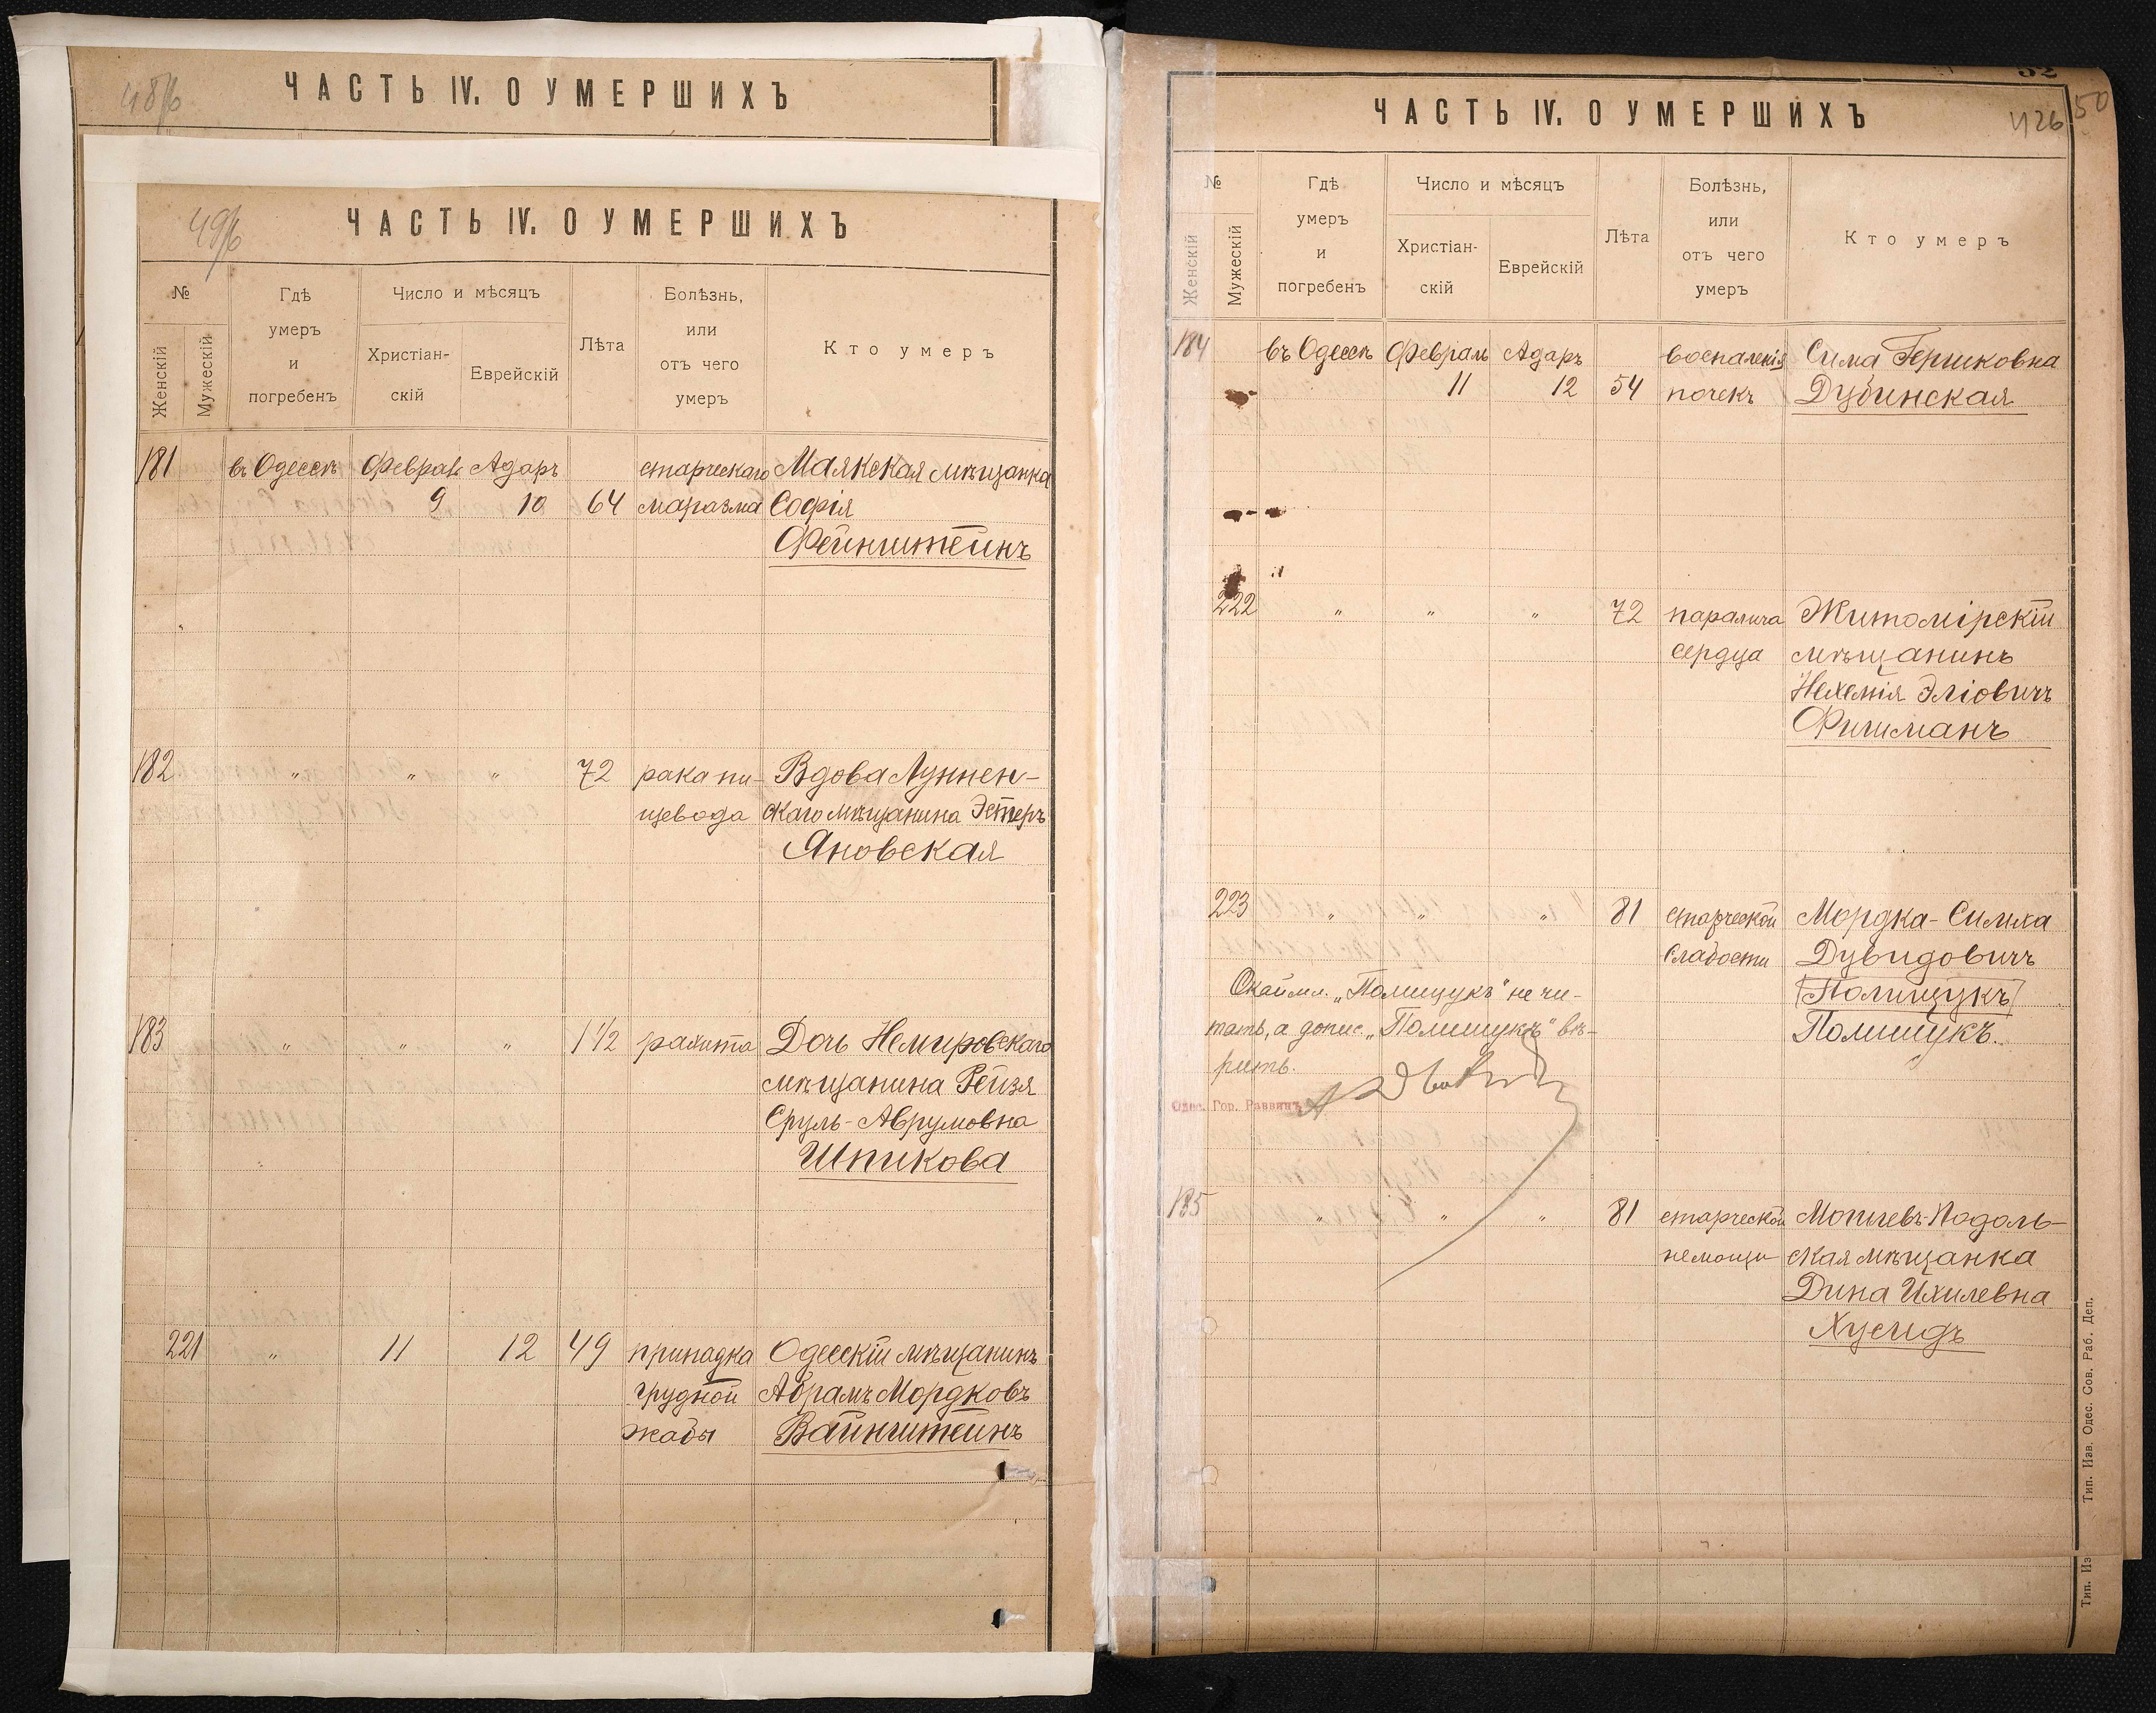 48/б
ЧАСТЬ IV. О УМЕРШИХЪ
49/б
ЧАСТЬ IV. О УМЕРШИХЪ
№
Женскій
Мужескій
Гдѣ
умеръ
и
погребенъ
Число и мѣсяцъ
Христіан-
скій
Еврейскій
Лѣта
Болѣзнь,
или
отъ чего
умеръ
Кто умеръ
181 въ Одессѣ Февраль Адаръ старческаго Маякская мѣщанка
9 10 64 маразма Софія
Фейнштейнъ
182 " " " 72 рака пи- Вдова Луннен-
щевода скаго мѣщанина Эстеръ
Яновская
183 " " " 1 1/2 рахита Дочь Немировскаго
мѣщанина Рейзя
Сруль-Аврумовна
Шпикова
221 " 11 12 49 припадка Одесскій мѣщанинъ
грудной Абрамъ Мордковъ
жабы Вайнштейнъ
52
50
426
ЧАСТЬ IV. О УМЕРШИХЪ
№
Женскій
Мужескій
Гдѣ
умеръ
и
погребенъ
Число и мѣсяцъ
Христіан-
скій
Еврейскій
Лѣта
Болѣзнь,
или
отъ чего
умеръ
Кто умеръ
184 въ Одессѣ Февраль Адаръ воспаленія Сима Гершковна
11 12 54 почекъ Дубинская
222 " " " 72 паралича Житомірскій
сердца мѣщанинъ
Нехемія Эліовичъ
Фишманъ
223 " " " 81 старческой Мордка-Симха
слабости Дувидовичъ
Полищукъ
Полишукъ.
Окаймл. „Полищукъ" не чи-
тать, а допис. „Полишукъ" вѣ-
рить.
Одес. Гор. Раввинъ
185 " " " 81 старческой Могилевъ-Подоль-
немощи ская мѣщанка
Дина Ихилевна
Хусидъ
Тип. Изв. Одес. Сов. Раб. Деп.
Тип. Из